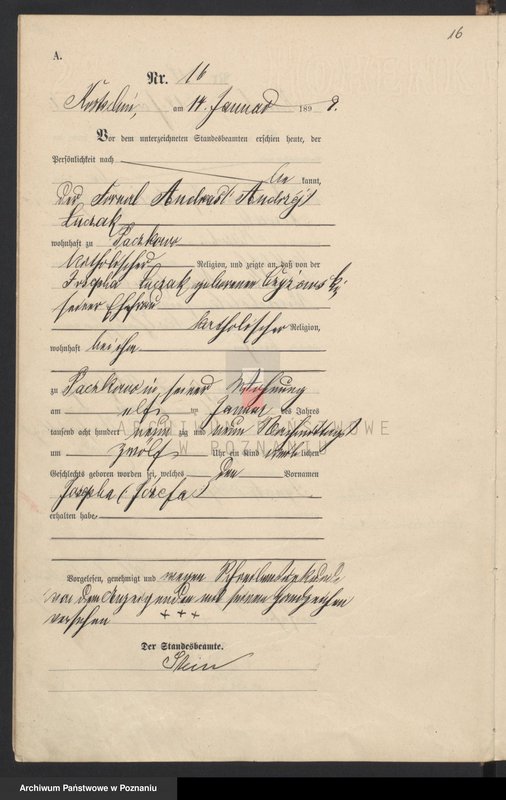 16
A.
Nr. 16
am 14 Januar 1899.
Vor dem unterzeichneten Standesbeamten erschien heute, der
Persönlichkeit nach
be kannt,
Der Fornal Andreas (Andrzej)
Łuczak
wohnhaft zu Paczkowo
katholischer Religion, und zeigte an, daß von der
Josepha Łuczak geborenen
seiner Ehefrau
katholischer Religion,
wohnhaft bei ihm
zu Paczkowo in seiner Wohnung
am elf ten Januar des Jahres
tausend acht hundert neun zig und neun Nachmittags
um zwölf Uhr ein Kind weib lichen
Geschlechts geboren worden sei, welches den Vornamen
Josepha (Józefa)
erhalten habe
ARCHIWUM PAŃSTWOWE
W POZNANIU
Vorgelesen, genehmigt und wegen Schreibensunkunde
von dem Anzeigenden mit seinem Handzeichen
versehen +++
Der Standesbeamte.
Stein
Archiwum Państwowe w Poznaniu